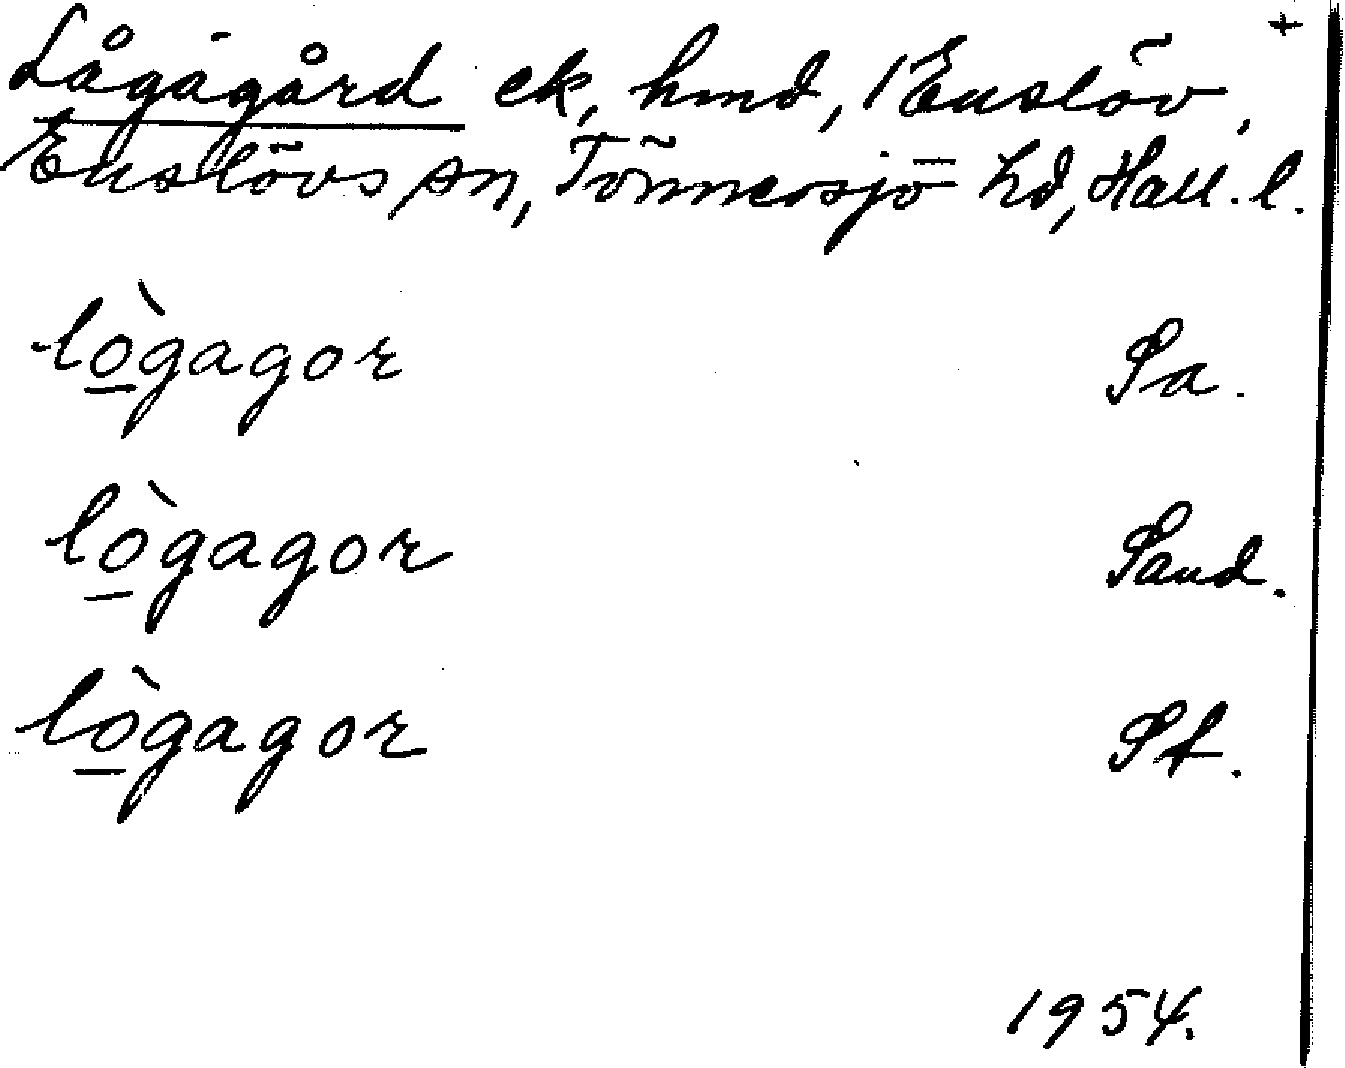 +
Lågagård ek, hmd, 1 Enslöv,
Enslövs sn, Tönnersjö hd, Hall. l.
lò̲gagor Sa.
lò̲gagor Sand.
lò̲gagor St.
1954.